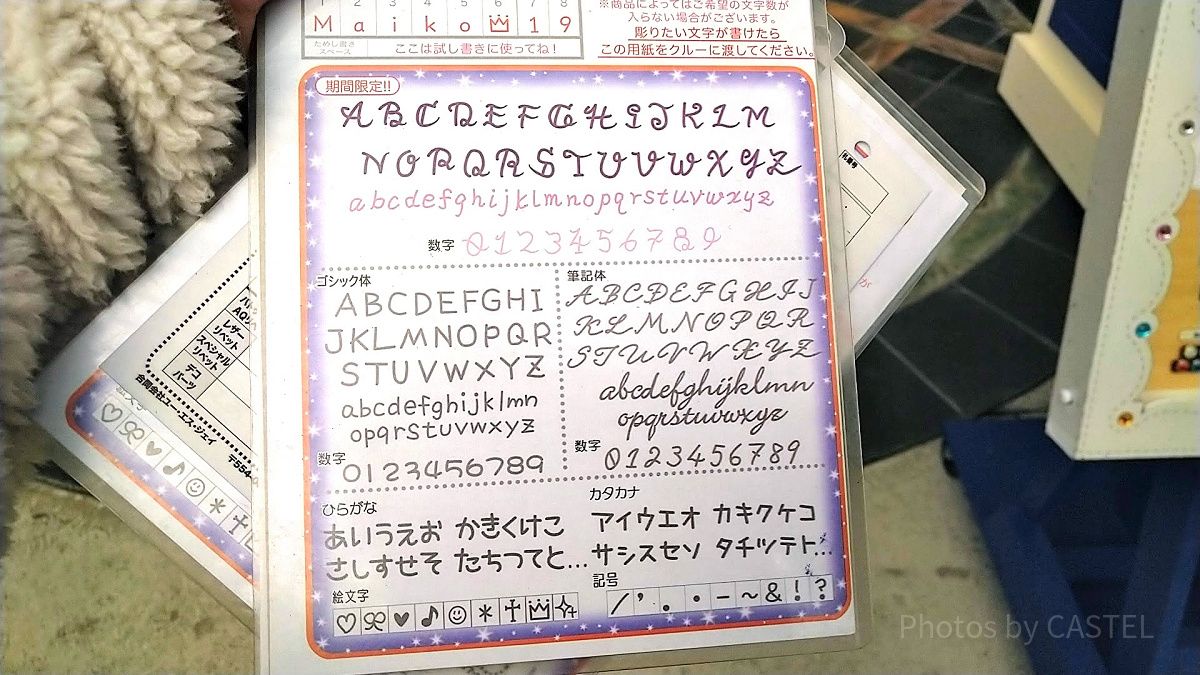 1 2 3 4 5 6 7 8
M a i k o 1 9
ためし書きスペース
ここは試し書きに使ってね!
※商品によってはご希望の文字数が
入らない場合がございます。
彫りたい文字が書けたら
この用紙をクルーに渡してください。
期間限定!!
A B C D E F G H I J K L M
N O P Q R S T U V W X Y Z
a b c d e f g h i j k l m n o p q r s t u v w x y z
数字 0 1 2 3 4 5 6 7 8 9
ゴシック体
A B C D E F G H I
J K L M N O P Q R
S T U V W X Y Z
a b c d e f g h i j k l m n
o p q r s t u v w x y z
数字 0 1 2 3 4 5 6 7 8 9
筆記体
A B C D E F G H I J
K L M N O P Q R
S T U V W X Y Z
abcdefghijklmn
opqrstuvwxyz
数字 0 1 2 3 4 5 6 7 8 9
ひらがな
あいうえお かきくけこ
さしすせそ たちつてと…
カタカナ
アイウエオ カキクケコ
サシスセソ タチツテト…
絵文字
♡ ♥ ♪ ☺ * ✝
記号
/ ’ . ・ − ~ & ! ?
レザー
リベット
スペシャル
リベット
デコ
パーツ
合同会社ユー・エス・ジェイ
〒554-
Photos by CASTEL